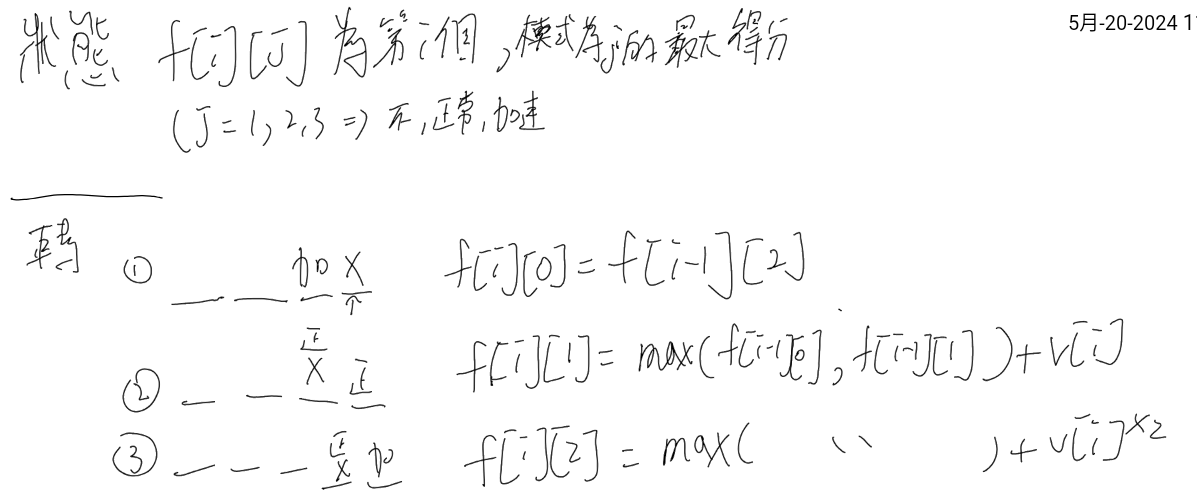 5月-20-2024 1
狀態 f[i][J] 為第i個,模式為j的最大得分
(J=1,2,3 => 不,正常,加速
轉
① 加 X f[i][0] = f[i-1][2]
↑
正
② X 正 f[i][1] = max(f[i-1][0], f[i-1][1]) + v[i]
正
③ X 加 f[i][2] = max( 〃 ) + v[i]×2